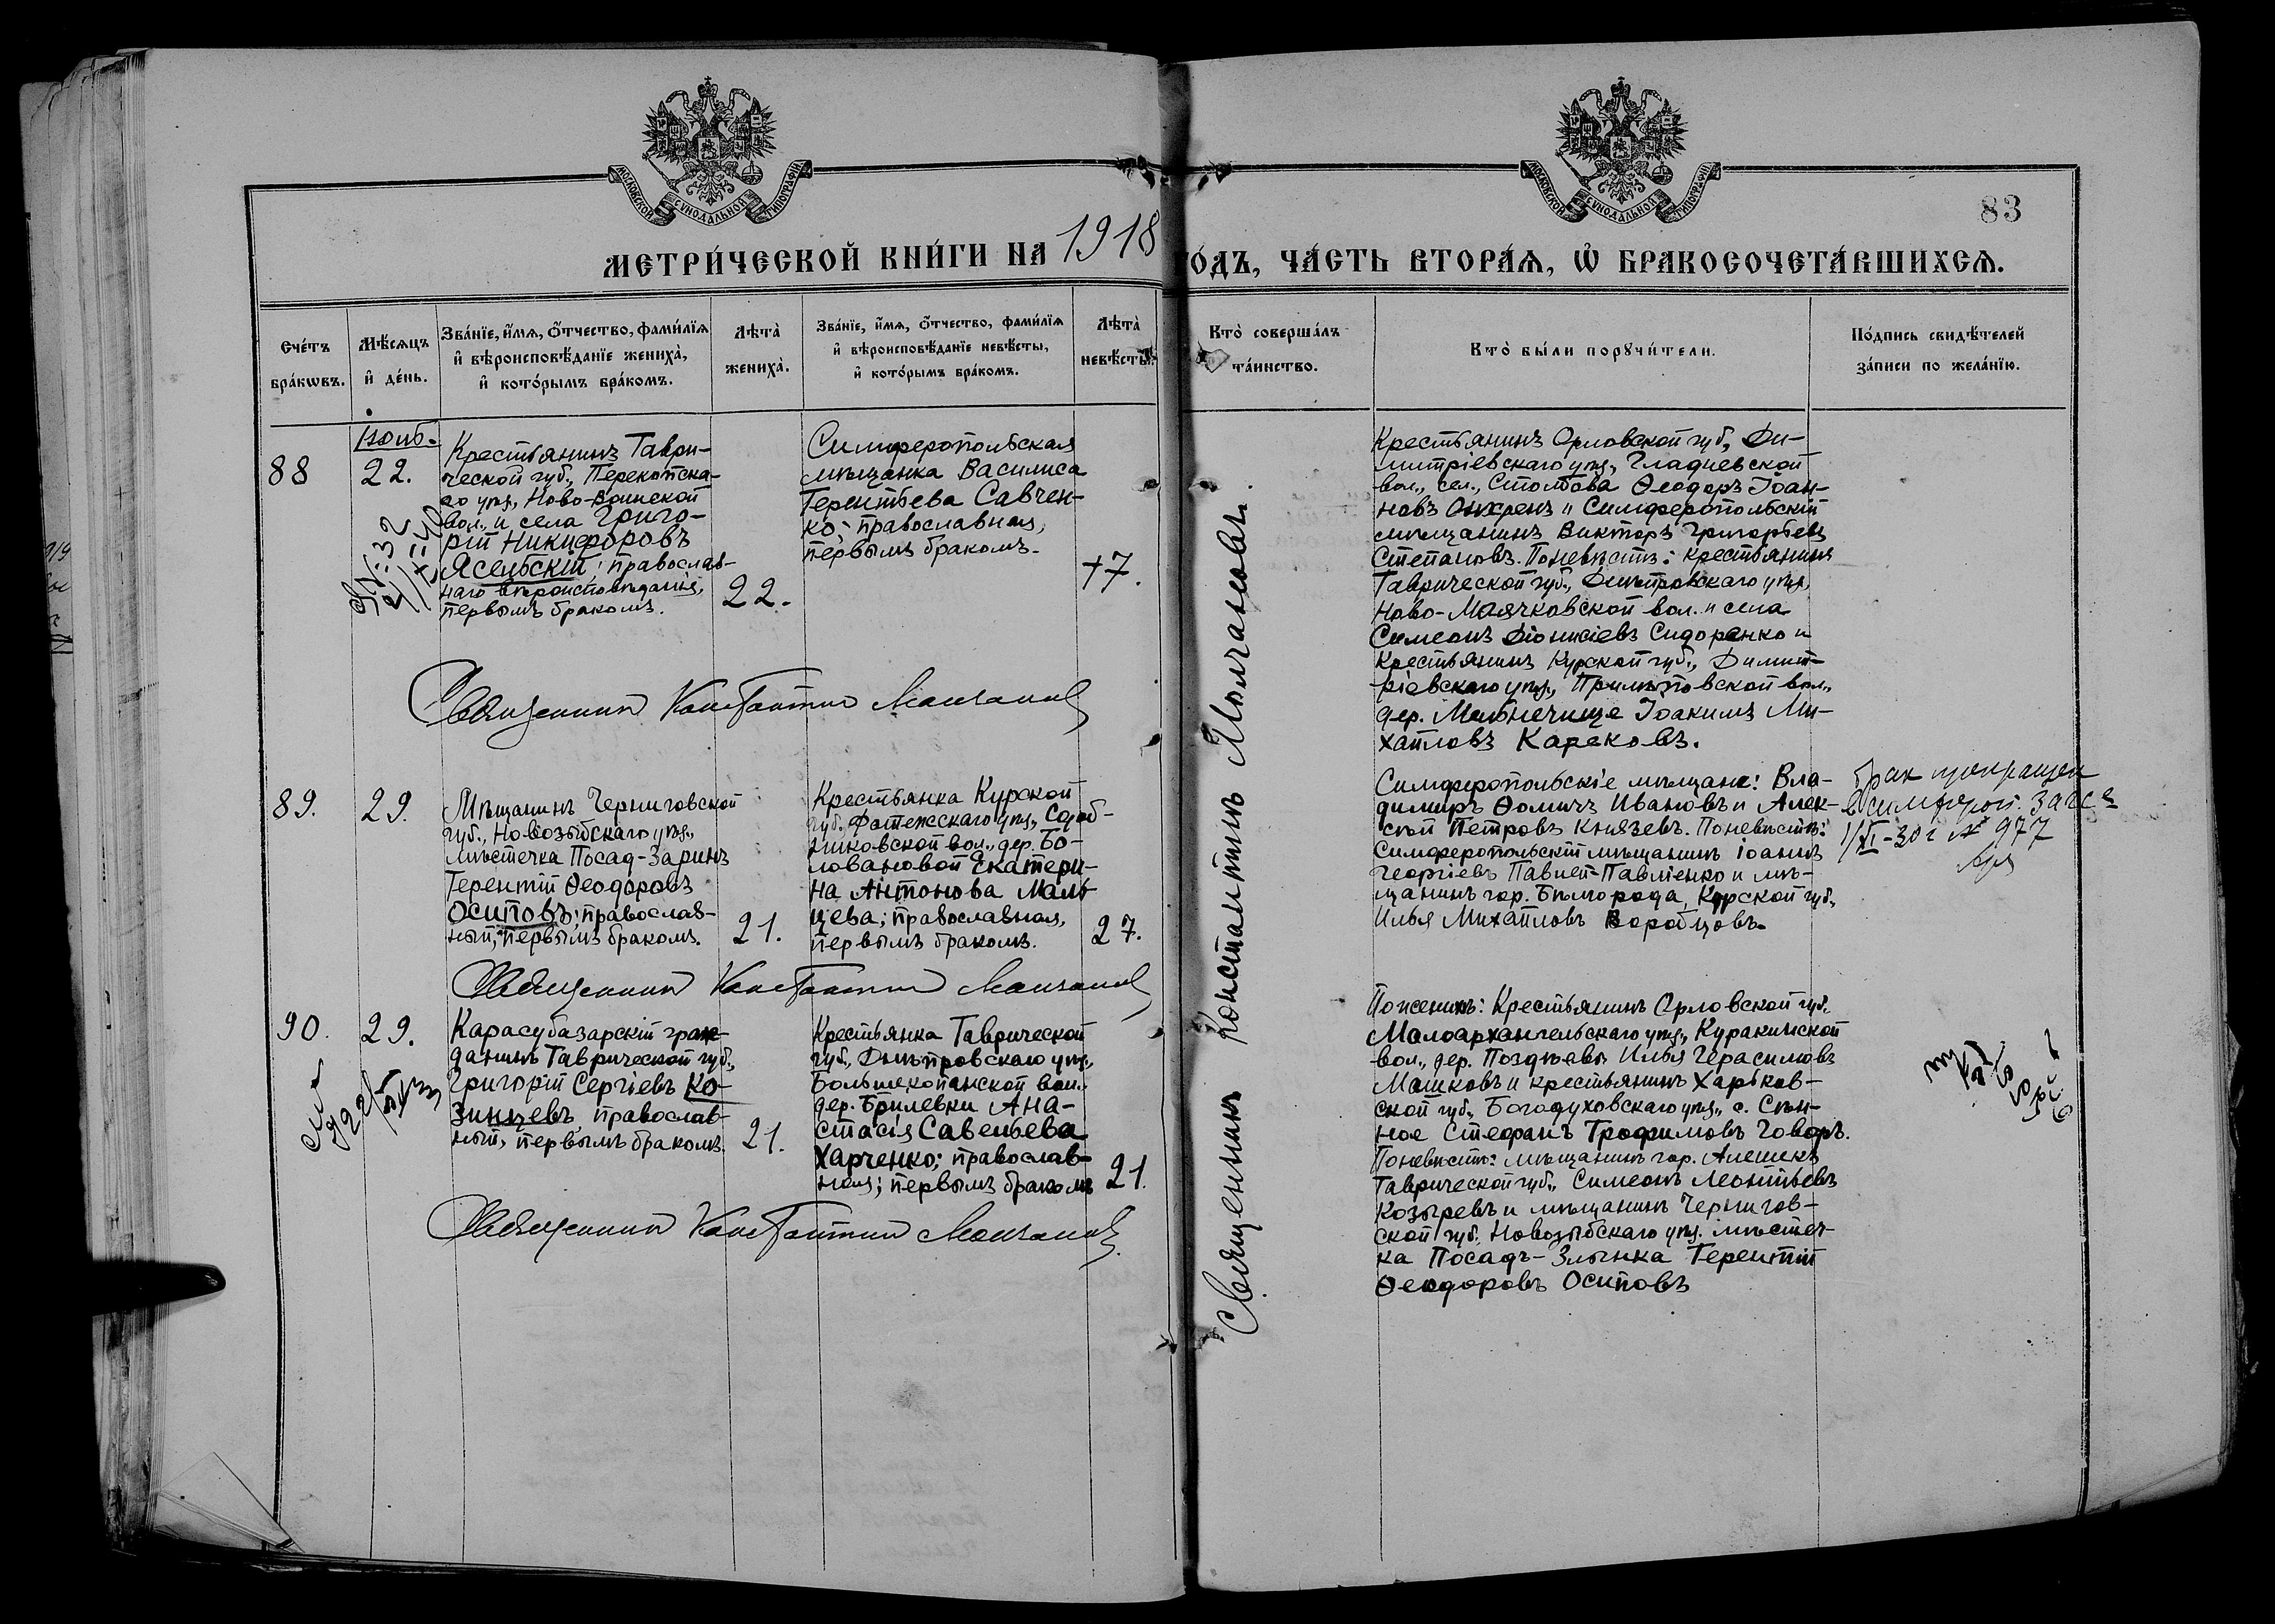 МОСКОВСКОЙ СѴНОДАЛЬНОЙ ТИПОГРАФІИ
МОСКОВСКОЙ СѴНОДАЛЬНОЙ ТИПОГРАФІИ
83
МЕТРИ́ЧЕСКОЙ КНИ́ГИ НА 1918 ГО́ДЪ, ЧА́СТЬ ВТОРА́Ѧ, Ѡ҆ БРАКОСОЧЕТА́ВШИХСѦ.
Сче́тъ
бра́кѡвъ.
Мѣ́сѧцъ
и҆ де́нь.
Зва́нїе, и҆́мѧ, ѻ҆́тчество, фами́лїѧ
и҆ вѣроисповѣ́данїе жениха̀,
и҆ кото́рымъ бра́комъ.
Лѣта̀
жениха̀.
Зва́нїе, и҆́мѧ, ѻ҆́тчество, фами́лїѧ
и҆ вѣроисповѣ́данїе невѣ́сты,
и҆ кото́рымъ бра́комъ.
Лѣта̀
невѣ́сты.
Кто̀ соверша́лъ
та́инство.
Кто̀ бы́ли порꙋчи́тели.
По́дпись свидѣ́телей
за́писи по жела́нїю.
88
Нояб.
22.
Крестьянинъ Таври-
ческой губ., Перекопска-
го уѣз., Ново-
вол., и села Григо-
рій Никифоровъ
Ясельскій; православ-
наго вѣроисповѣданія,
первымъ бракомъ.
22.
Симферопольская
мѣщанка Василиса
Терентьева Савчен-
ко; православная,
первымъ бракомъ.
17.
Священникъ Константинъ Молчановъ.
Крестьянинъ Орловской губ., Ди-
митріевскаго уѣз.,
вол., сел., Столбова Ѳеодоръ Іоан-
новъ и Симферопольскій
мѣщанинъ Викторъ Григорьевъ
Степановъ. По невѣстѣ: крестьянинъ
Таврической губ., Днѣпровскаго уѣз.,
Ново-Маячковской вол. и села
Симеонъ Діонисіевъ Сидоренко и
крестьянинъ Курской губ., Димит-
ріевскаго уѣз., вол.,
дер. Іоакимъ Ми-
хайловъ Карековъ.
Священникъ Константинъ Молчановъ
89.
29.
Мѣщанинъ Черниговской
губ., Новозыбскаго уѣз.,
мѣстечка Посад-Заринъ
Терентій Ѳеодоровъ
Осиповъ; православ-
ный, первымъ бракомъ.
21.
Крестьянка Курской
губ. Фатежскаго уѣз.,
вол., дер. Бо-
ловановой Екатери-
на Антонова Маль-
цева; православная,
первымъ бракомъ.
27.
Симферопольскіе мѣщане: Вла-
димиръ Ѳомичъ Ивановъ и Алек-
сѣй Петровъ Князевъ. По невѣстѣ:
Симферопольскій мѣщанинъ Іоаннъ
Георгіевъ Павліенко и мѣ-
щанинъ гор. Бѣлгорода, Курской губ.,
Илья Михайловъ Воробцовъ.
брак прекращен
в симфероп. загсе
1/XI-30 г № 977
Священникъ Константинъ Молчановъ
90.
29.
Карасубазарскій граж-
данинъ Таврической губ.,
Григорій Сергіевъ Ко-
зинцевъ, православ-
ный, первымъ бракомъ.
21.
Крестьянка Таврической
губ., Днѣпровскаго уѣз.,
Большекопанской вол.,
дер. Брилевки Ана-
стасія Савельева
Харченко; православ-
ная; первымъ бракомъ
21.
По женихѣ: Крестьянинъ Орловской губ.
Малоархангельскаго уѣз., Куракинской
вол., дер. Поздѣевы Илья Герасимовъ
Машковъ и крестьянинъ Харьков-
ской губ., Богодуховскаго уѣз., с. Сѣн-
ное Стефанъ Трофимовъ Говоръ.
По невѣстѣ: мѣщанинъ гор. Алешекъ
Таврической губ., Симеонъ Леонтьевъ
Козыревъ и мѣщанинъ Чернигов-
ской губ. Новозыбскаго уѣз. мѣстеч-
ка Посадъ-Злынка Терентій
Ѳеодоровъ Осиповъ
Священникъ Константинъ Молчановъ.